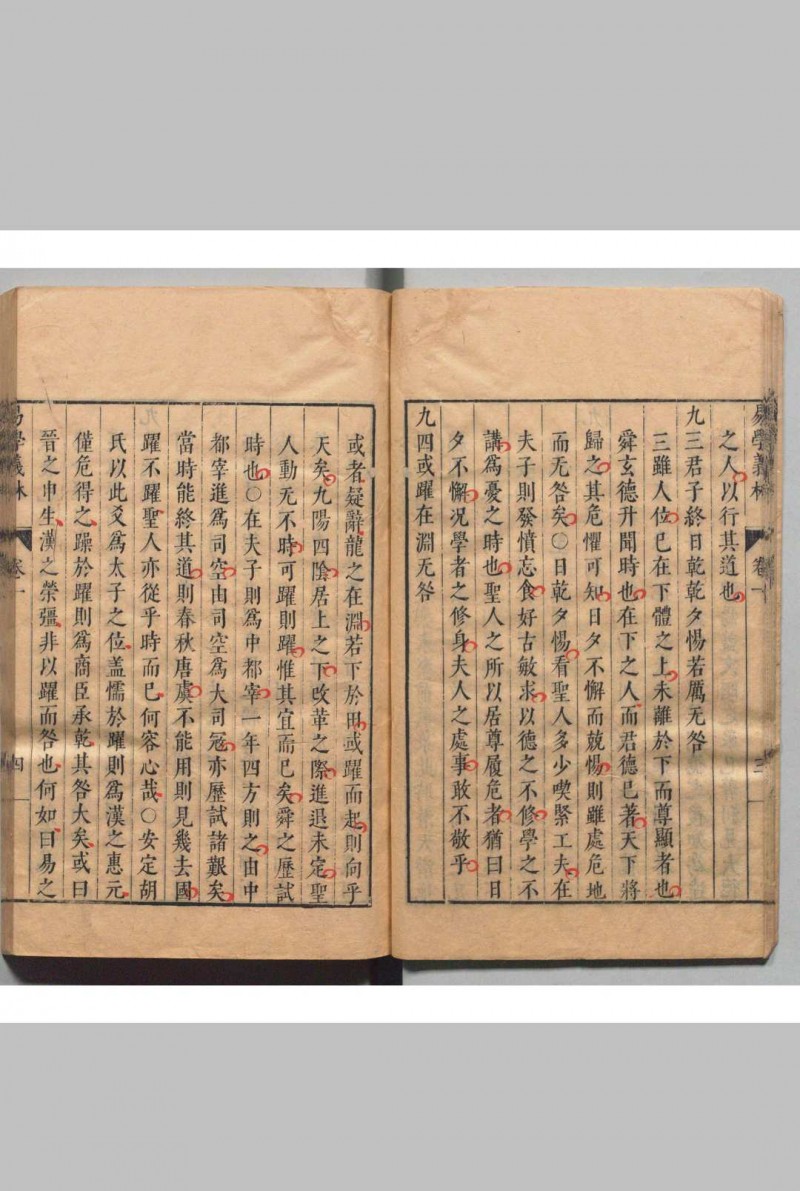 易學義林 卷一 三
之人以行其道也
九三君子終日乾乾夕惕若厲无咎
三雖人位已在下體之上未離於下而尊顯者也
舜玄德升聞時也在下之人而君德已著天下將
歸之其危懼可知日夕不懈而兢惕則雖處危地
而无咎矣〇日乾夕惕看聖人多少喫緊工夫在
夫子則發憤忘食好古敏求以德之不修學之不
講為憂之時也聖人之所以居尊履危者猶曰日
夕不懈况學者之修身夫人之處事敢不敬乎
九四或躍在淵无咎
或者疑辭龍之在淵若下於田或躍而起則向乎
天矣九陽四陰居上之下改革之際進退未定聖
人動无不時可躍則躍惟其宜而已矣舜之歷試
時也〇在夫子則為中都宰一年四方則之由中
都宰進為司空由司空為大司冠亦歷試諸艱矣
當時能終其道則春秋唐虞不能用則見幾去國
躍不躍聖人亦從乎時而已何容心哉〇安定胡
氏以此爻為太子之位盖懦於躍則為漢之惠元
僅危得之躁於躍則為商臣承乾其咎大矣或曰
晉之申生漢之榮彊非以躍而咎也何如曰易之
易學義林 卷一 四